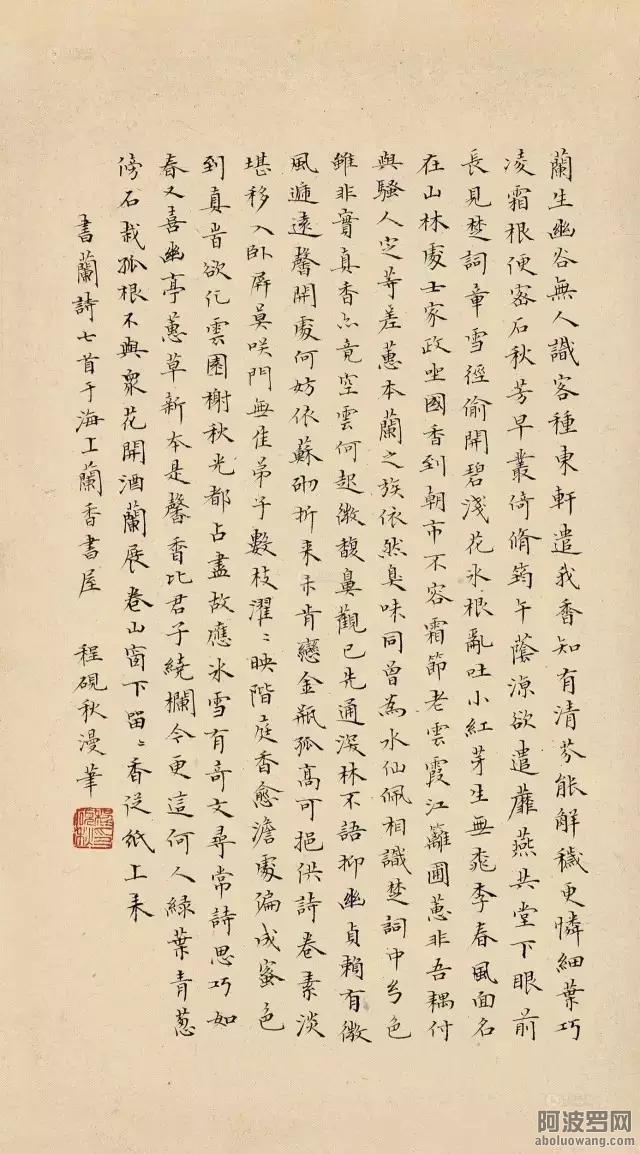 蘭生幽谷無人識客種東軒遣我香知有清芬能解穢更憐細葉巧
凌霜根便密石秋芳早叢倚脩筠午蔭涼欲遣蘼蕪共堂下眼前
長見楚詞章雪徑偷開碧淺花氷根亂吐小紅芽生無桃李春風面名
在山林處士家政坐國香到朝市不容霜節老雲霞江蘺圃蕙非吾耦付
與騷人定等差蕙本蘭之族依然臭味同曾為水仙佩相識楚詞中兮色
雖非實真香亦竟空雲何起微馥鼻觀已先通深林不語抑幽貞賴有微
風遞遠馨開處何妨依蘇砌折來未肯戀金瓶孤高可挹供詩卷素淡
堪移入臥屏莫咲門無佳弟子數枝濯〻映階庭香愈澹處偏成蜜色
到真香欲化雲園榭秋光都占盡故應氷雪有奇文尋常詩思巧如
春又喜幽亭蕙草新本是馨香比君子繞欄今更這何人緑葉青蔥
傍石栽孤根不與衆花開酒蘭展卷山窗下畱〻香從紙上來
書蘭詩七首于海上蘭香書屋 程硯秋漫筆
阿波罗网
aboluowang.com